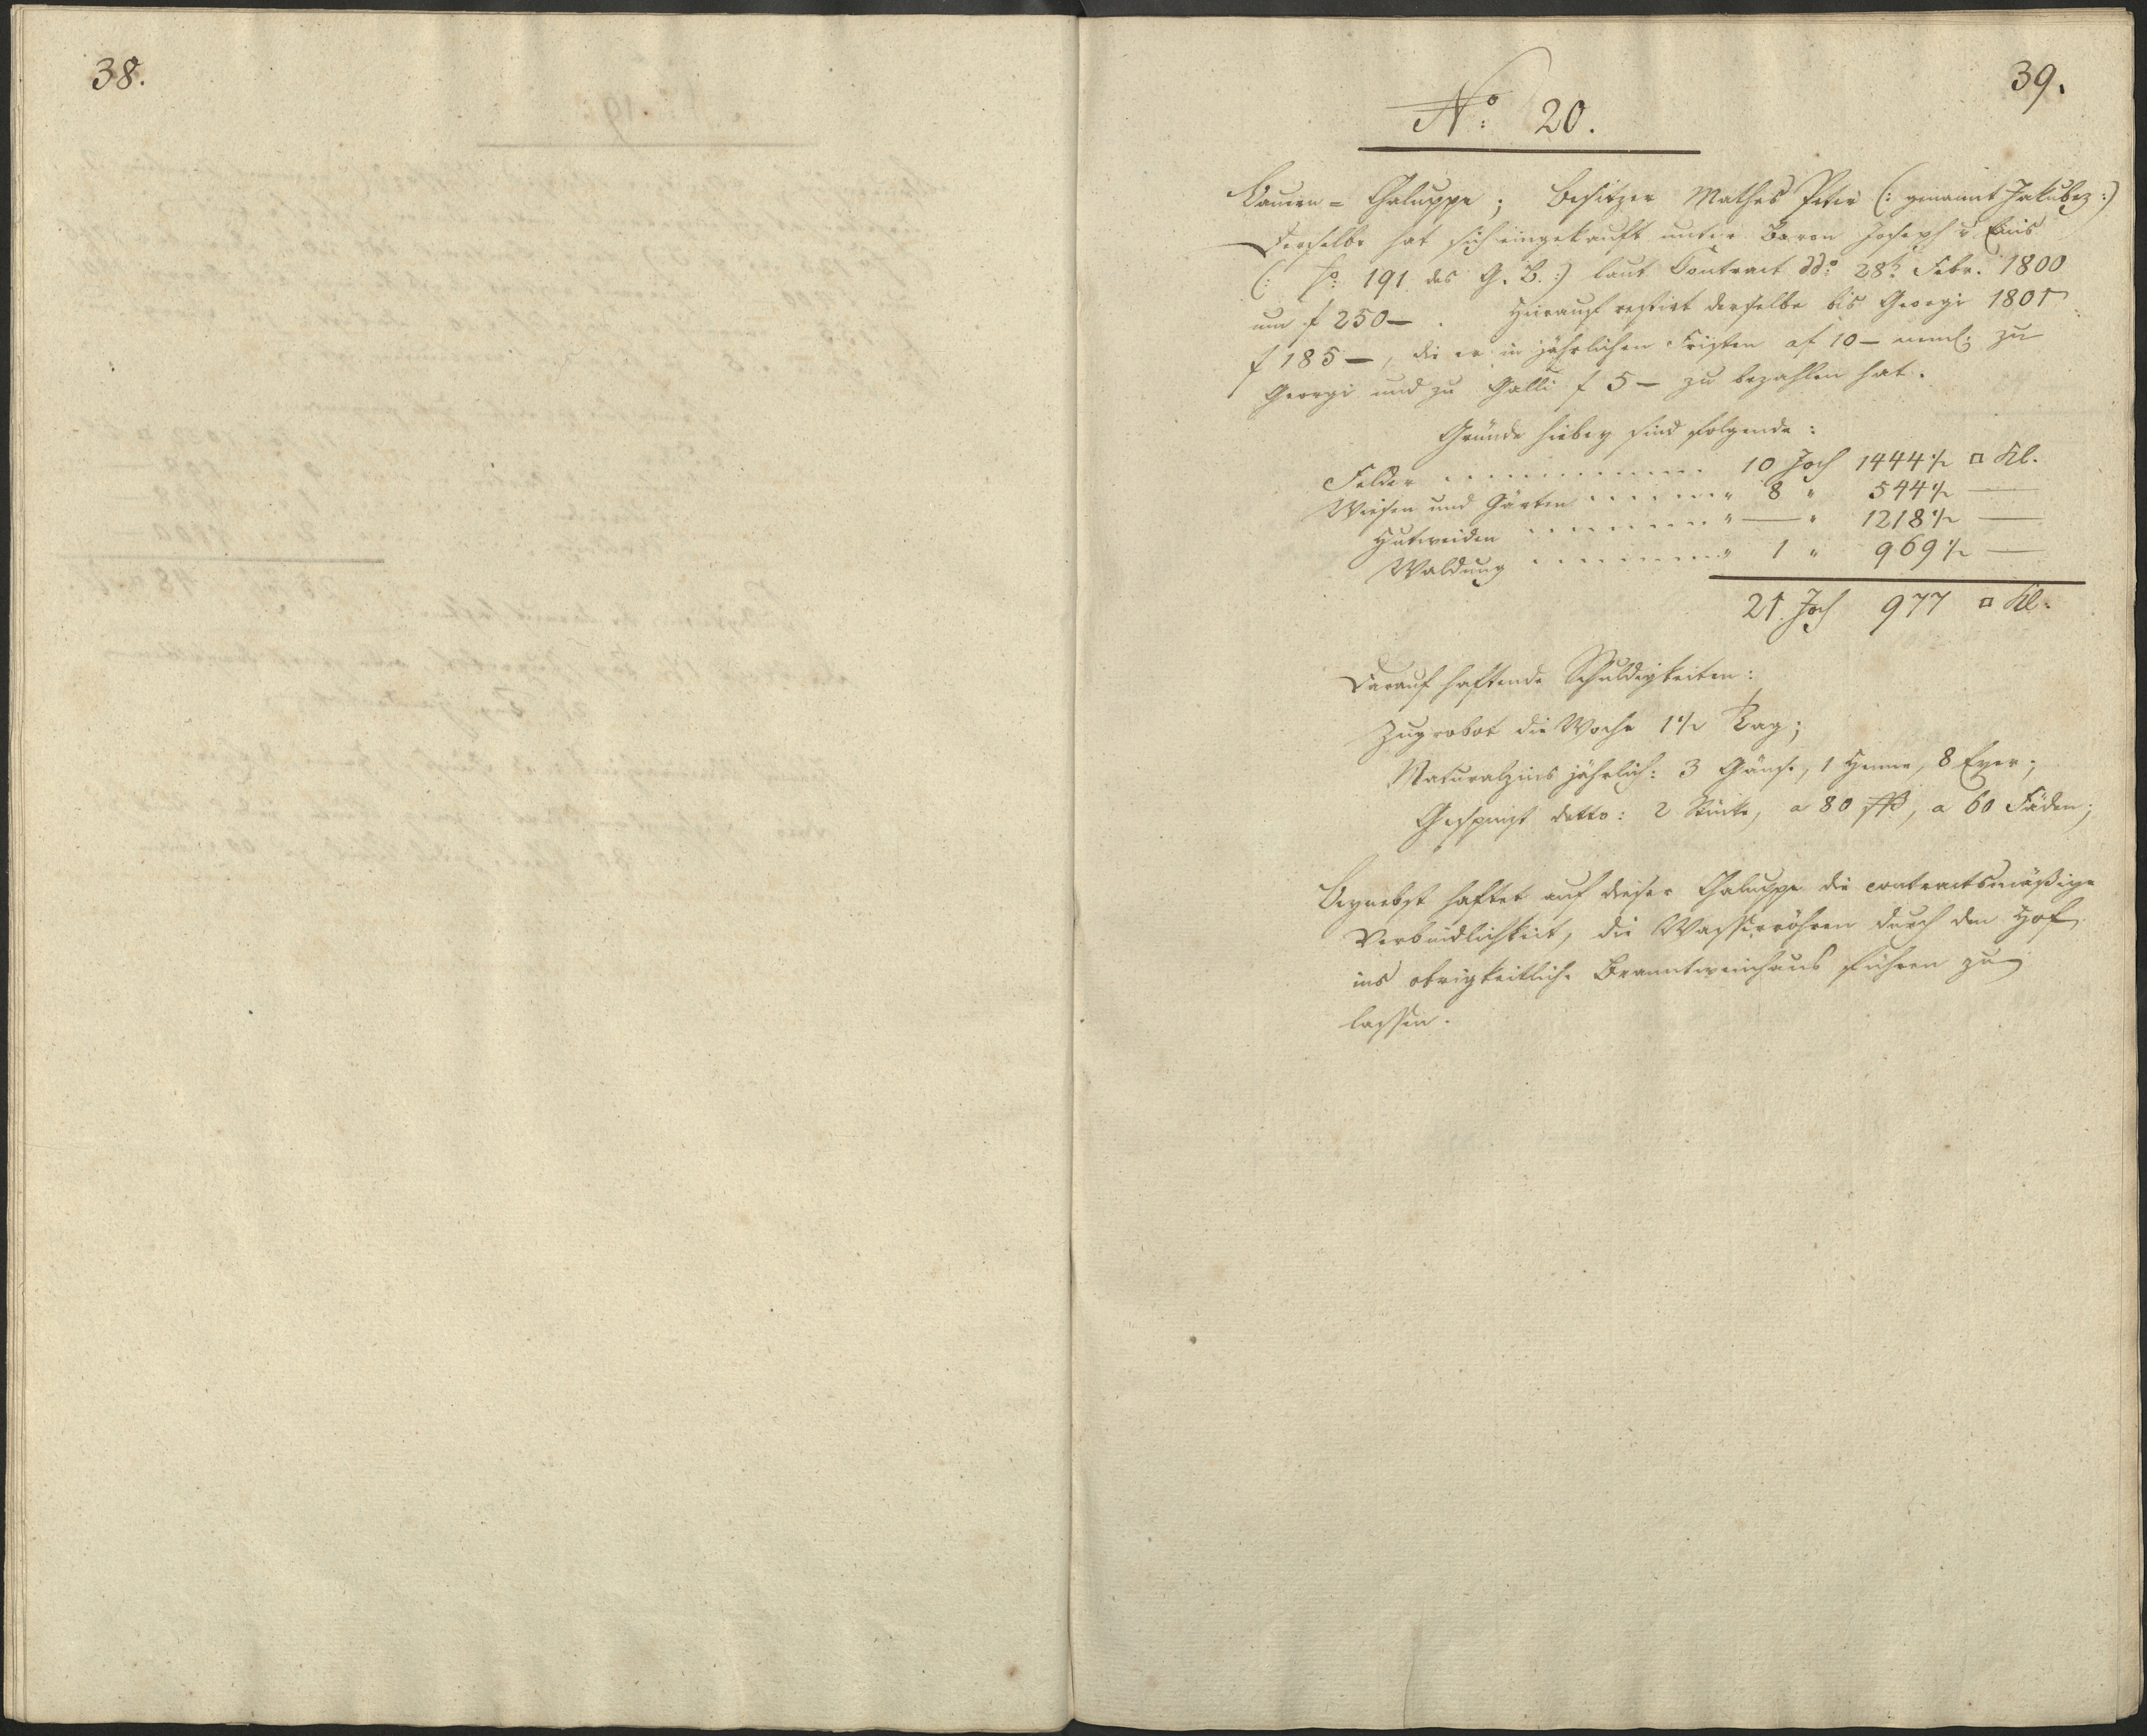 38.
39.
No: 20.
Bauern = Chaluppe; Besitzer Mathes Peter (: genannt Jakubez :)
Derselbe hat sich eingekauft unter Baron Joseph v.
(: fo: 191 des G. B. :) laut Contract ddo: 28t. Febr. 1800
um f 250 — . Hierauf restirt derselbe bis Georgi 1801
f 185 —, die er in jährlichen Fristen af 10 — neml: zu
Georgi und zu Galli f 5 — zu bezahlen hat.
Gründe hiebey sind folgende:
Felder . . . . . . . . . . . . 10 Joch 1444½ □ Kl.
Wiesen und Gärten . . . . . . „ 8 „ 544½ —
Hutweiden . . . . . . . . . „ — „ 1218½ —
Waldung . . . . . . . . . „ 1 „ 969½ —
21 Joch 977 □ Kl.
Darauf haftende Schuldigkeiten:
Zugrobot die Woche 1½ Tag;
Naturalzins jährlich: 3 Gänse, 1 Henne, 8 Eyer;
Gespinst detto: 2 Stücke, a 80 a 60 Fäden;
Beynebst haftet auf dieser Chaluppe die contractsmäßige
Verbindlichkeit, die Wasserröhren durch den Hof
ins obrigkeitliche Branntweinhaus führen zu
lassen.